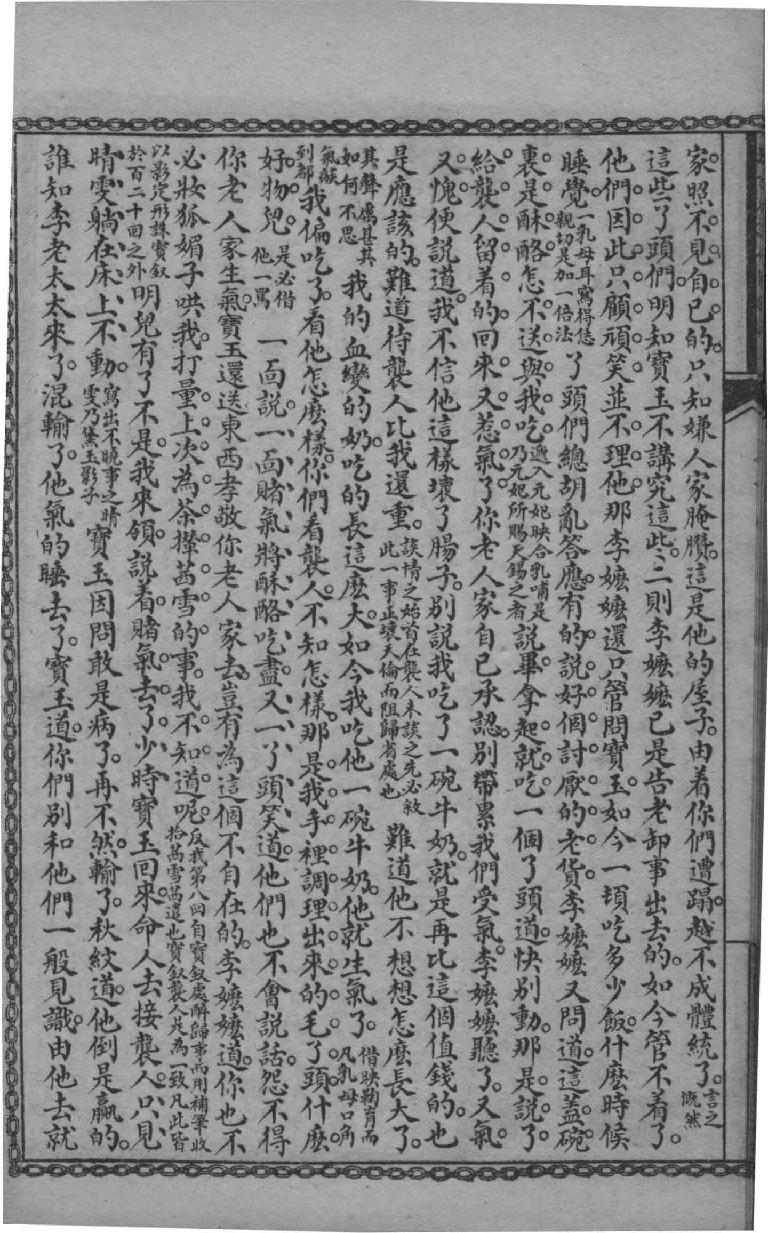 家照不見自己的只知嫌人家腌臢這是他的屋子由着你們遭蹋越不成體統了。言之慨然
這些丫頭們明知寶玉不講究這些二則李嬷嬷已是告老卸事出去的如今管不着了。
他們因此只顧頑笑並不理他那李嬷嬷還只管問寶玉如今一頓吃多少飯什麼時候
睡覺一乳母耳寫得恁親切是加一倍法丫頭們總胡亂答應有的說好個討厭的老貨李嬷嬷又問道這蓋碗
裏是酥酪怎不送與我吃遞入元妃映合乳哺是乃元妃所賜天錫之者說畢拿起就吃一個丫頭道快別動那是說了
給襲人留着的回來又惹氣了你老人家自己承認別帶累我們受氣李嬷嬷聽了又氣
又愧便說道我不信他這樣壞了腸子別說我吃了一碗牛奶就是再比這個值錢的也
是應該的難道待襲人比我還重。談情之始首在襲人未談之先必敘此一事正壞天倫而阻歸省處也難道他不想想怎麼長大了。
其聲厲甚其如何不思我的血變的奶吃的長這麼大如今我吃他一碗牛奶他就生氣了。借映鞠育而凡乳母口角
氣燄到都我偏吃了看他怎麼樣你們看襲人不知怎樣那是我手裡調理出來的毛丫頭什麼
好物兒是必借他一罵一面說一面賭氣將酥酪吃盡又一丫頭笑道他們也不會說話怨不得
你老人家生氣寶玉還送東西孝敬你老人家去豈有為這個不自在的李嬷嬷道你也不
必妝狐媚子哄我打量上次為茶攆茜雪的事我不知道呢反我第八回自寶釵處醉歸事而用補筆收拾茜雪茜還也寶釵襲人是為一致凡此皆
以影定形誅寶釵於百二十回之外明兒有了不是我來領說着賭氣去了少時寶玉回來命人去接襲人只見
晴雯躺在床上不動。寫出不曉事之晴雯乃黛玉影子寶玉因問敢是病了再不然輸了秋紋道他倒是贏的。
誰知李老太太來了混輸了他氣的睡去了寶玉道你們別和他們一般見識由他去就